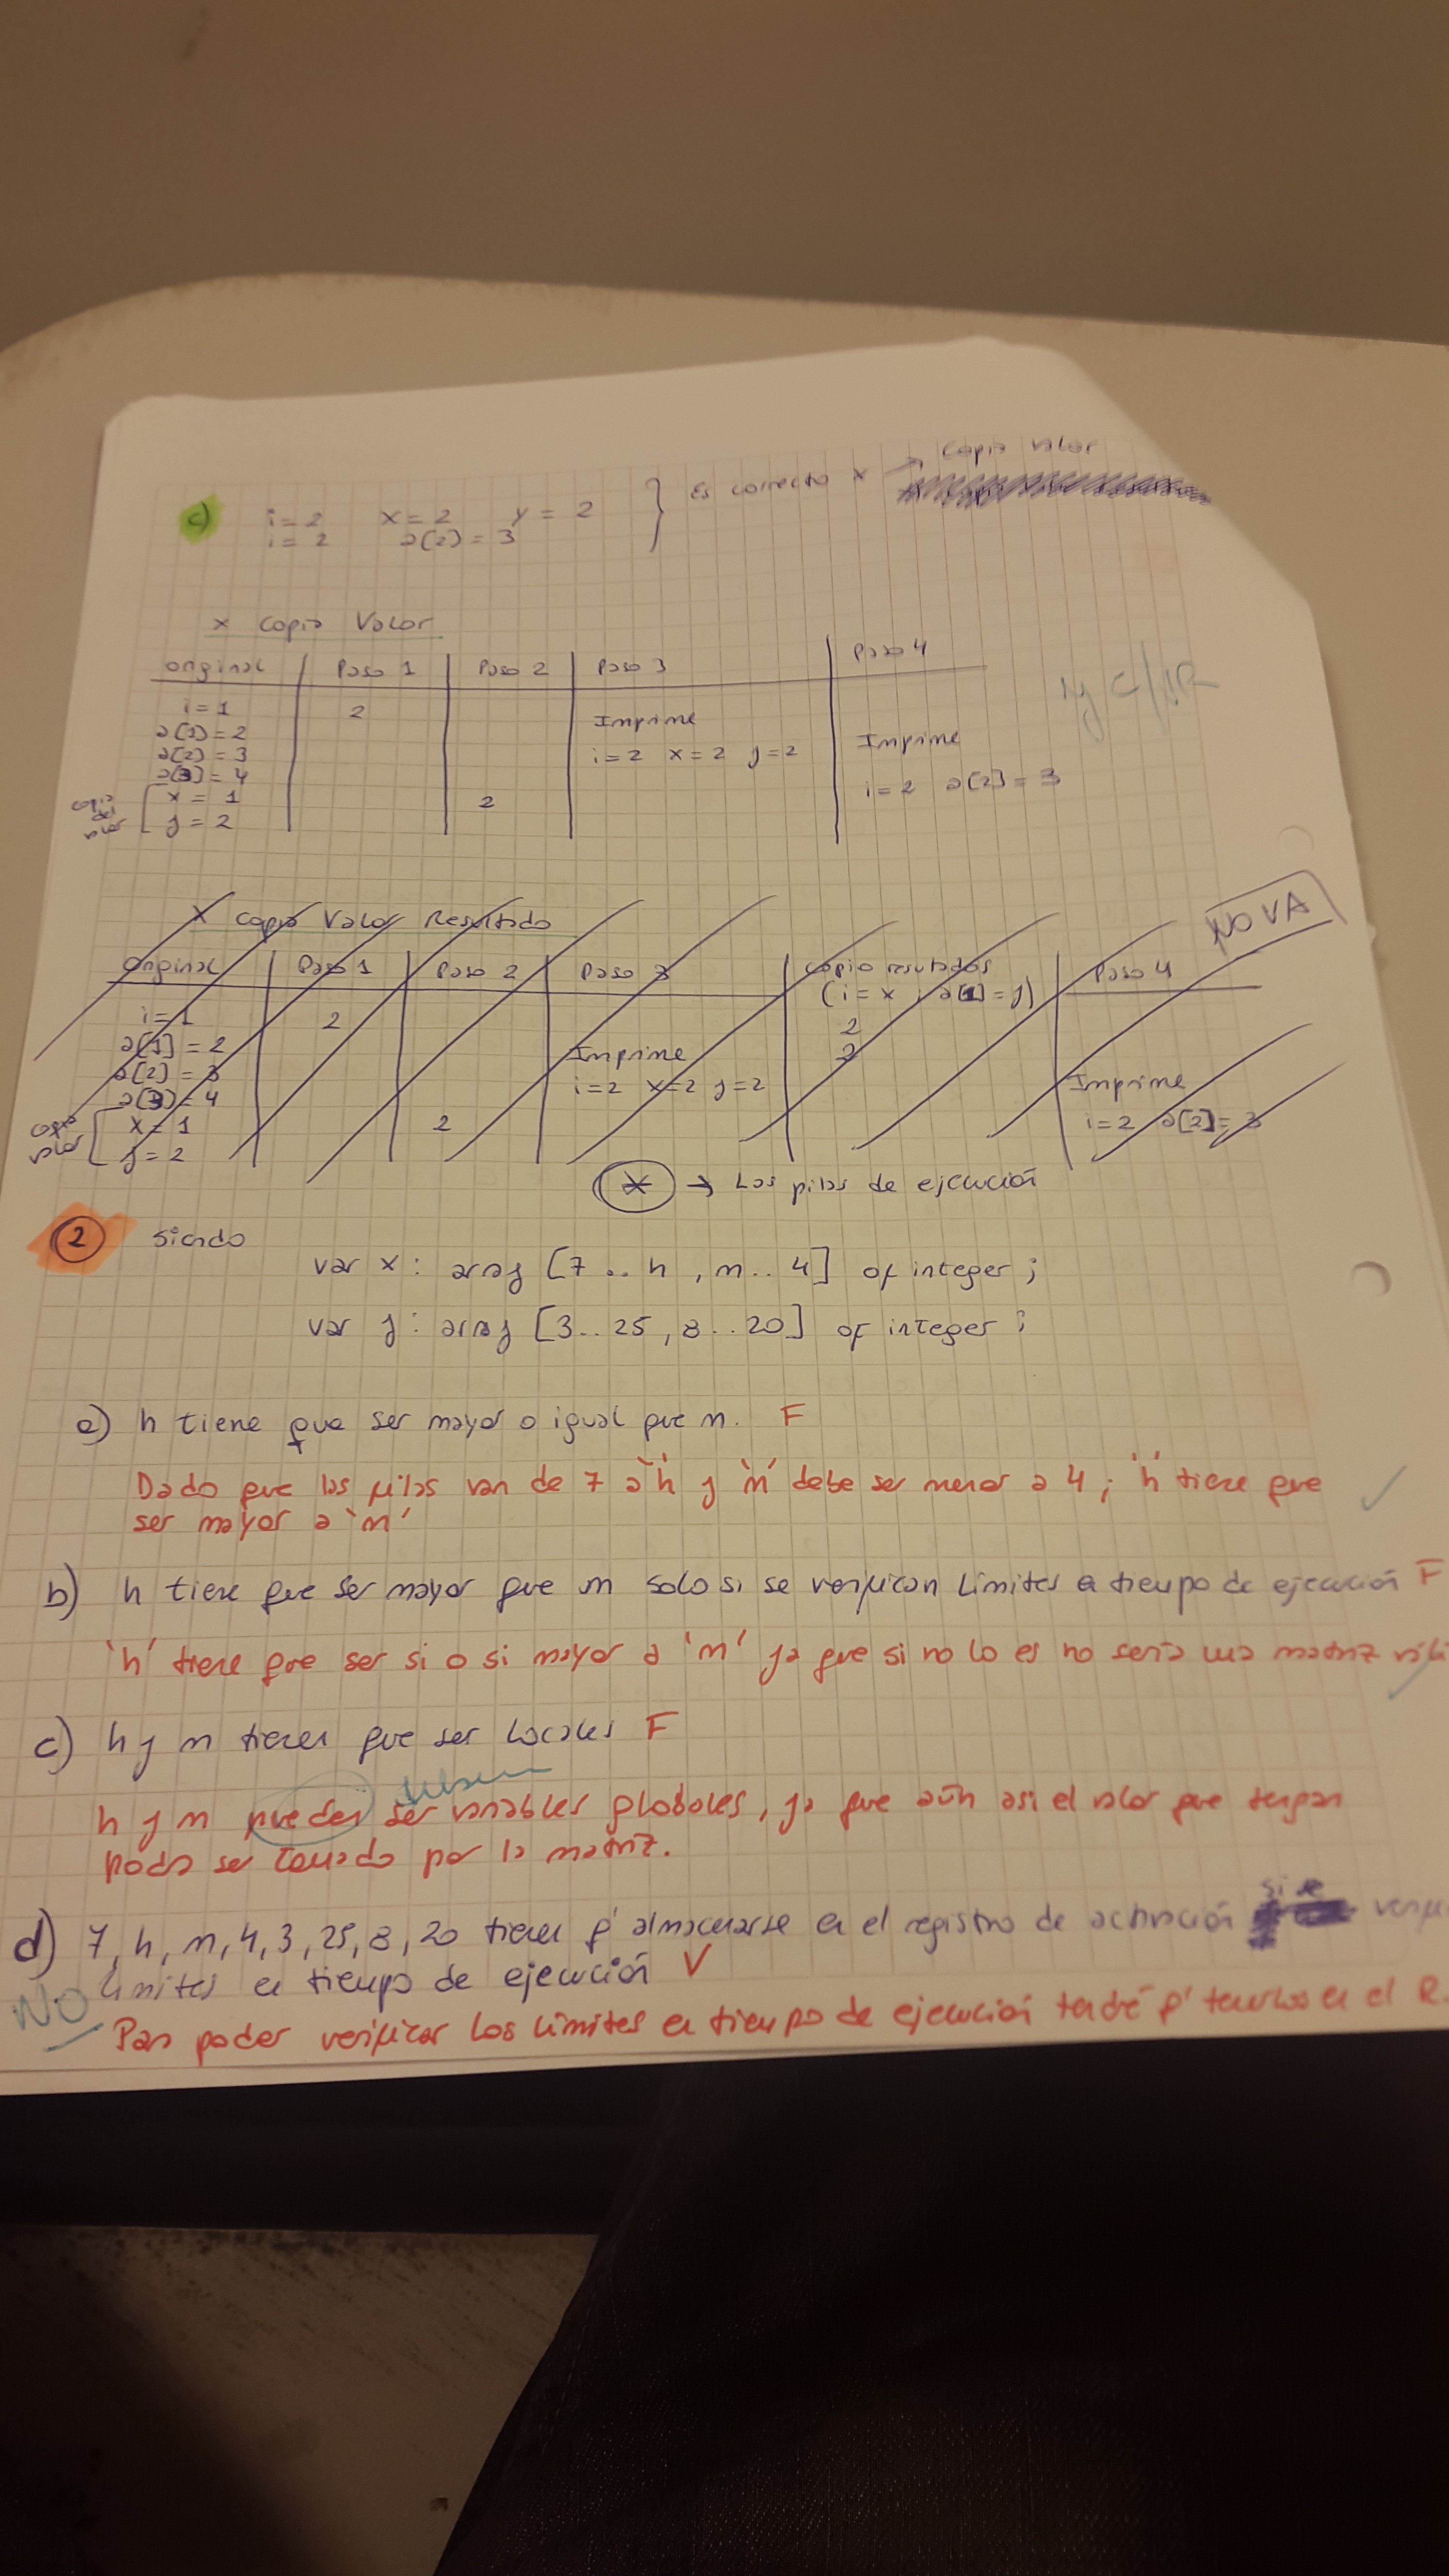 c) i=2 x=2 y=2 } Es correcto x → Copia valor
i=2 a[2]=3
x Copia Valor
original Paso 1 Paso 2 Paso 3 Paso 4
i=1 2
a[1]=2 Imprime
a[2]=3 i=2 x=2 y=2 Imprime
a[3]=4 i=2 a[2]=3
copia del valor x=1 2
y=2
y C/R
x copia Valor Resultado
NO VA
original Paso 1 Paso 2 Paso 3 copio resultados Paso 4
(i=x; a[1]=y)
i=1 2 2
a[1]=2 Imprime 2
a[2]=3 i=2 x=2 y=2 Imprime
a[3]=4 i=2 a[2]=3
copia valor x=1 2
y=2
* → Las pilas de ejecución
2 Siendo
var x: array [7..h, m..4] of integer;
var y: array [3..25, 8..20] of integer;
a) h tiene que ser mayor o igual que m. F
Dado que las filas van de 7 a 'h' y 'm' debe ser menor a 4; 'h' tiene que
ser mayor a 'm'
b) h tiene que ser mayor que m solo si se verifican límites en tiempo de ejecución F
'h' tiene que ser si o si mayor a 'm' ya que si no lo es no sería una matriz
c) h y m tienen que ser locales F
h y m pueden ser variables globales, ya que aún asi el valor que tengan
podrá ser tomado por la matriz.
d) 7, h, m, 4, 3, 25, 8, 20 tienen q' almacenarse en el registro de activación si se
límites en tiempo de ejecución V
NO
Para poder verificar los límites en tiempo de ejecución tendré q' tenerlos en el R.